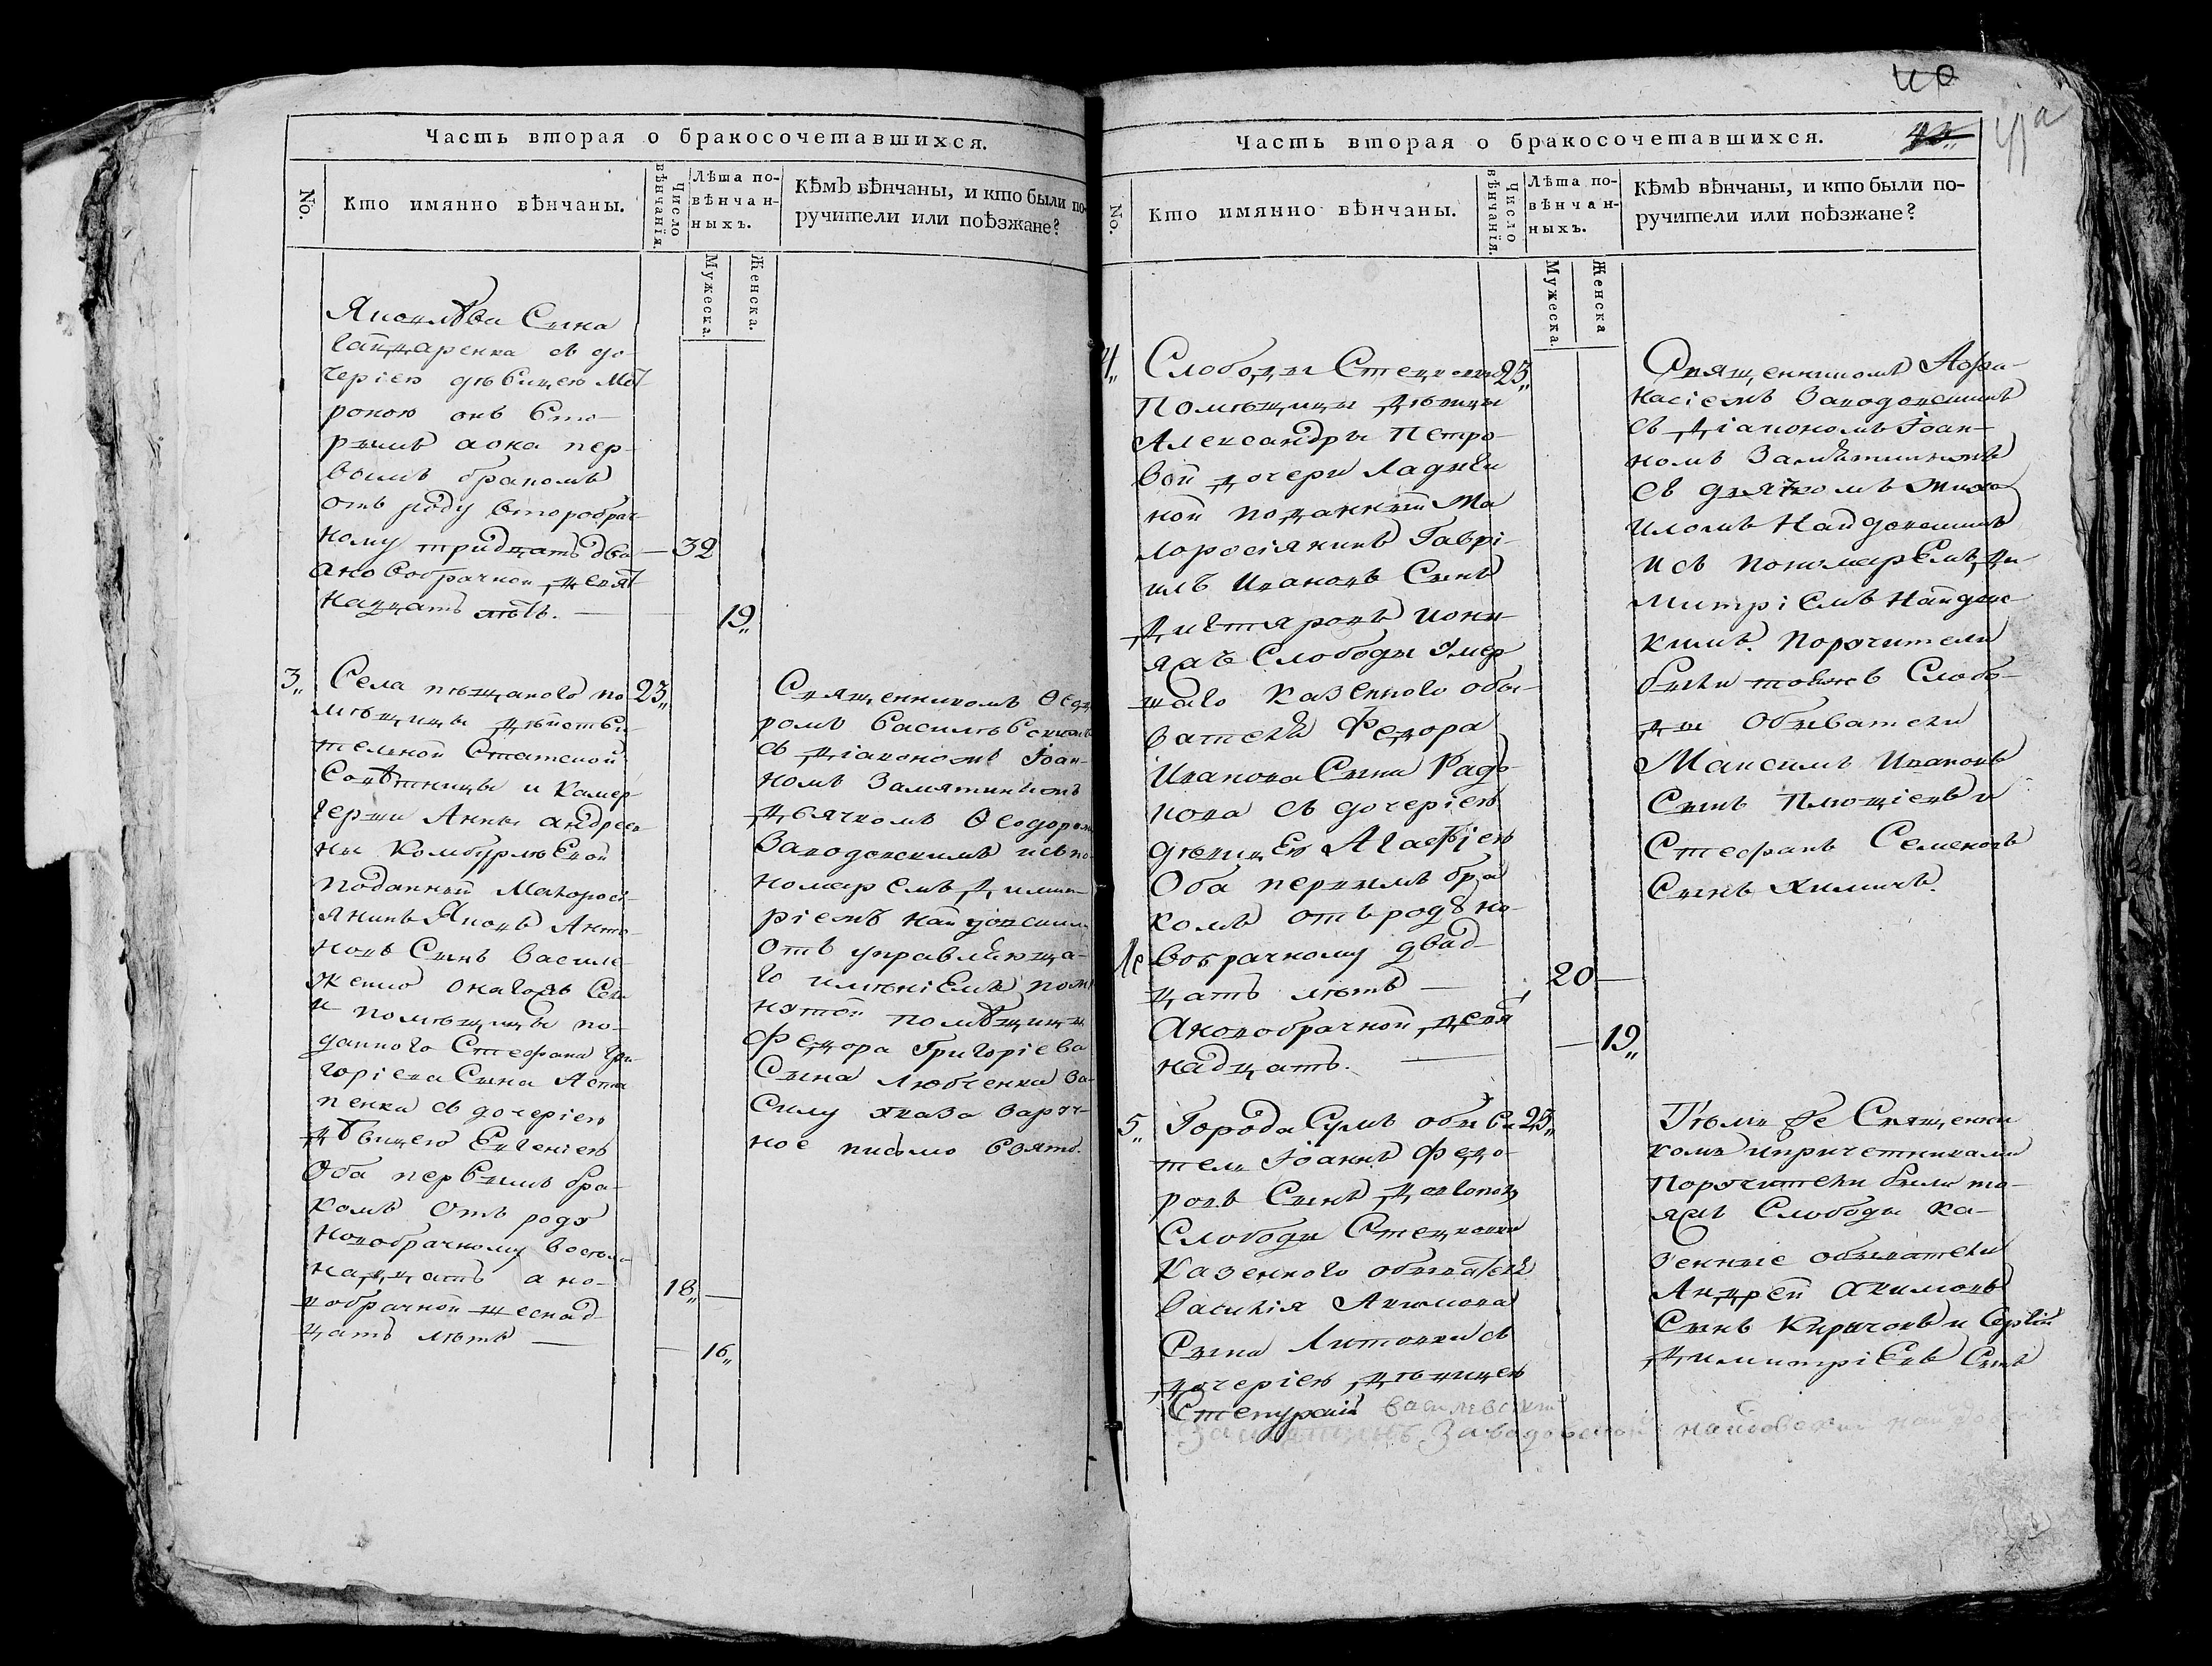 Часть вторая о бракосочетавшихся.
No.
Кто имянно вѣнчаны.
Число вѣнчанія.
Лѣта повѣнчанныхъ.
Мужеска.
Женска.
Кѣмъ вѣнчаны, и кто были по-
ручители или поѣзжане?
Сына
съ до-
черіею дѣвицею Мот
роною онъ вто-
рымъ а она пер-
вымъ бракомъ
отъ роду второбрач-
ному тридцать два — 32
а новобрачной девят
надцать лѣтъ. — 19„
3„ Села пѣщаного по 23„
мѣщицы дѣйстви-
тельной Статской
Совѣтницы и Камер
герши Анны андрее
ны Комбурлѣевой
поданный Малоросі-
янинъ Яковъ Анто-
новъ Сынъ Василе-
женко онагожъ Села
и помѣщицы по-
данного Стефана Гри-
горіева Сына
пенка съ дочеріею
дѣвицею Евгеніею
Оба первымъ бра-
комъ Отъ роду
Новобрачному восем-
надцать а но- 18„ —
вобрачной шеснад-
цать лѣтъ — 16„
Священникомъ Ѳеод
ромъ Василѣвскимъ
съ діакономъ Іоан-
номъ Замятнинымъ
дьячкомъ Ѳеодоромъ
Заводовскимъ и съ по-
номаремъ димит-
ріемъ Найдовским
Отъ управляюща-
го имѣніемъ пом
нутой помѣщицы
Федора Григоріева
Сына Любченка въ
Силу указа заруч-
ное писмо взято.
40
41а
Часть вторая о бракосочетавшихся.
No.
Кто имянно вѣнчаны.
Число вѣнчанія.
Лѣта повѣнчанныхъ.
Мужеска.
Женска
Кѣмъ вѣнчаны, и кто были по-
ручители или поѣзжане?
4„ Слободы Стецковки 25„
Помѣщицы дѣвицы
Александры Петро-
вой дочери Ладыги
ной поданный Ма
лоросіянинъ Гаврі-
илъ Ивановъ Сынъ
Дихтяровъ
яжъ Слободы Умер
шаго казенного обы-
вателя Федора
Иванова Сына Радо-
нова съ дочеріею
дѣвицею Агафіею
Оба первымъ бра
комъ отъ роду но-
вобрачному двад-
цать лѣтъ — 20 —
А новобрачной девят
надцать. — 19„
Священникомъ Афа-
насіемъ Заводовскимъ
съ діакономъ Іоан-
номъ Замятнинымъ
съ дьячкомъ Миха
иломъ Найдовскимъ
и съ пономаремъ Ди-
митріемъ Найдов-
кимъ. Поручители
были тоежъ Слобо-
ды Обыватели
Максимъ Ивановъ
Сынъ Плющіевъ и
Стефанъ Семеновъ
Сынъ Химичъ.
5„ Города Сумъ обыва 25„
тель Іоаннъ Федо-
ровъ Сынъ
Слободы Стецковки
Казенного обывателя
Василія Акимова
Сына Литовки съ
дочеріею дѣвицею
Тѣмъ же Священни
комъ и причетниками
Поручители были то-
яжъ Слободы ка-
зенные обыватели
Андрей Акимовъ
Сынъ Киричовъ и Сергій
Димитріевъ Сынъ